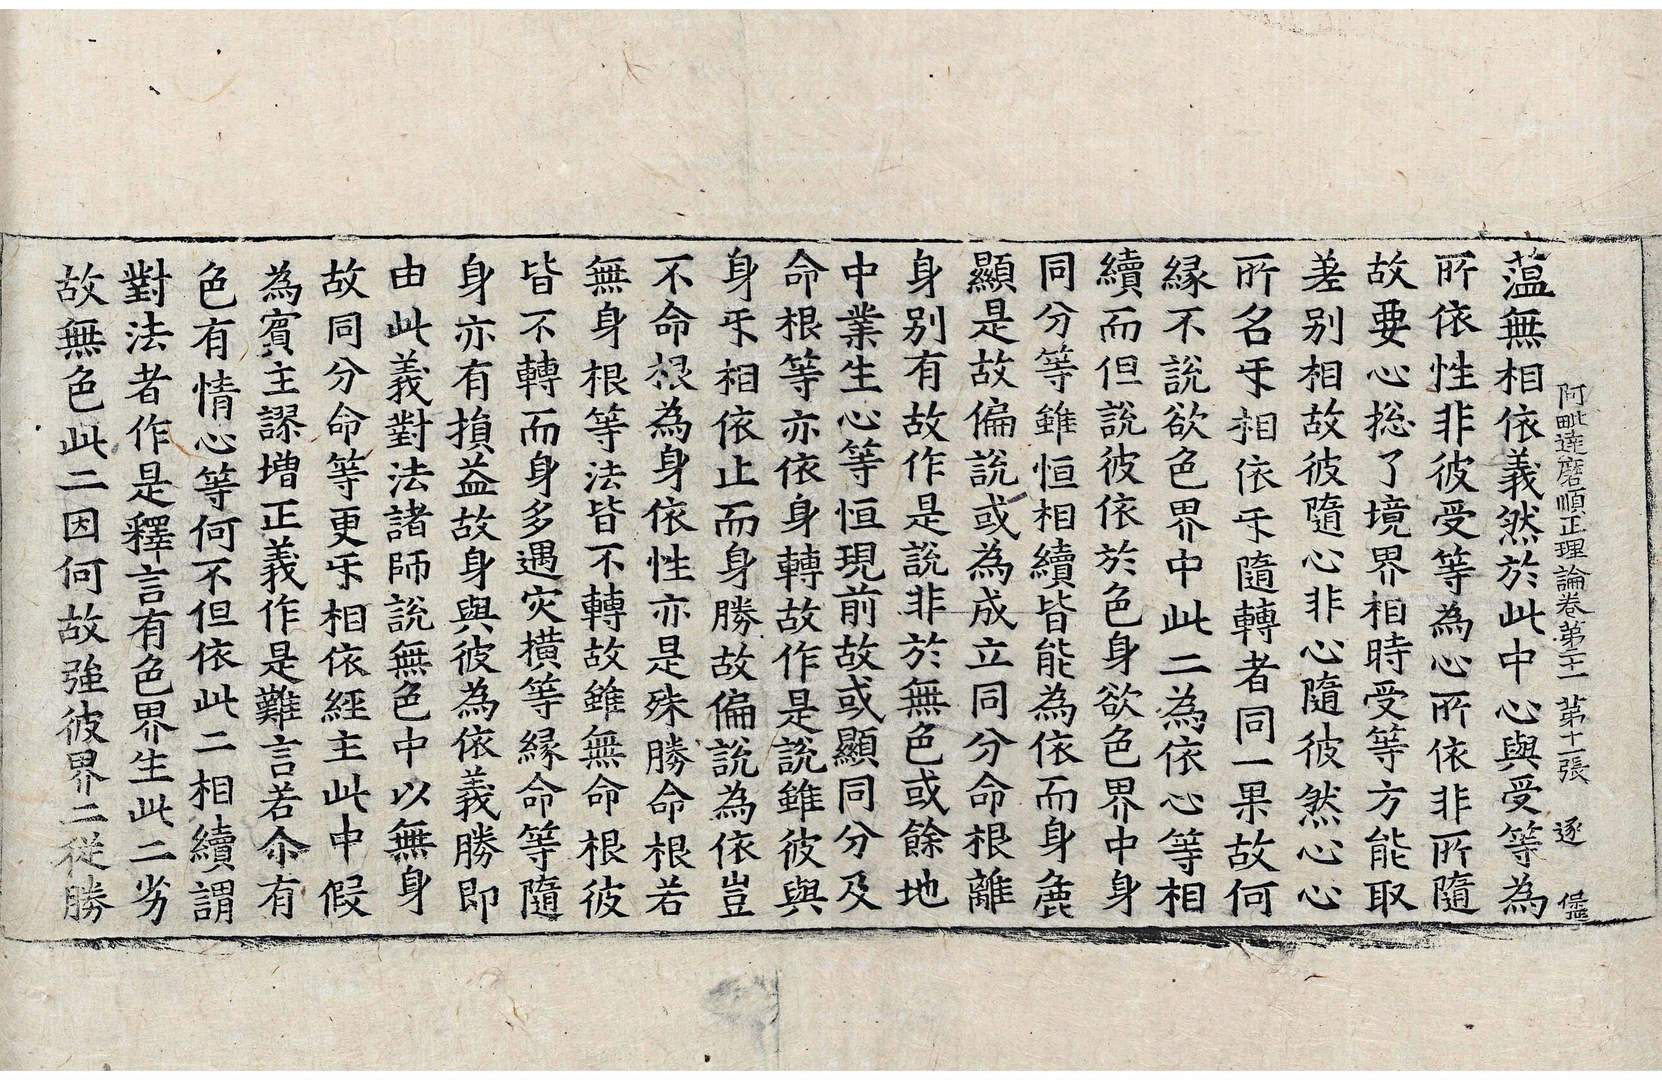 阿毗達磨順正理論卷第二十一　第十一張　逐
薀無相依義然於此中心與受等為
所依性非彼受等為心所依非所隨
故要心捴了境界相時受等方能取
差別相故彼隨心非心隨彼然心心
所名㸦相依㸦隨轉者同一果故何
緣不說欲色界中此二為依心等相
續而但說彼依於色身欲色界中身
同分等雖恒相續皆能為依而身麁
顯是故偏說或為成立同分命根離
身別有故作是說非於無色或餘地
中業生心等恒現前故或顯同分及
命根等亦依身轉故作是說雖彼與
身㸦相依止而身勝故偏說為依豈
不命根為身依性亦是殊勝命根若
無身根等法皆不轉故雖無命根彼
皆不轉而身多遇灾橫等緣命等隨
身亦有損益故身與彼為依義勝即
由此義對法諸師說無色中以無身
故同分命等更㸦相依經主此中假
為賓主謬增正義作是難言若尒有
色有情心等何不但依此二相續謂
對法者作是釋言有色界生此二劣
故無色此二因何故強彼界二從勝